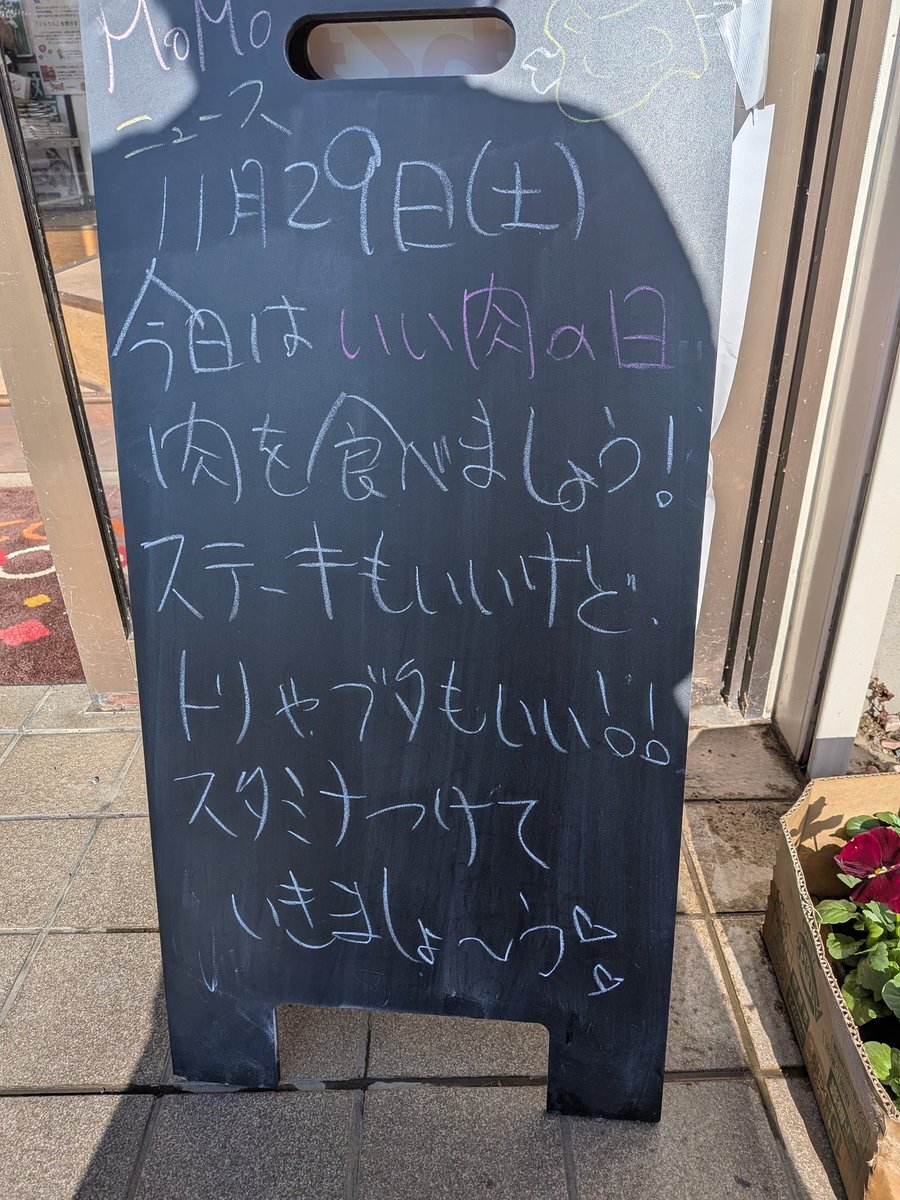 MoMo
ニュース
11月29日(土)
今日はいい肉の日
肉を食べましょう!
ステーキもいいけど、
トリやブタもいい!!
スタミナつけて
いきましょ～う♡